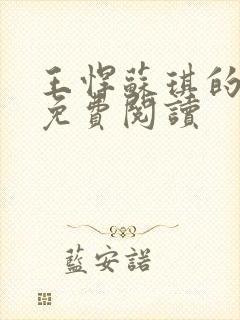 王悍蘇琪的
免費閱讀
藍安諾